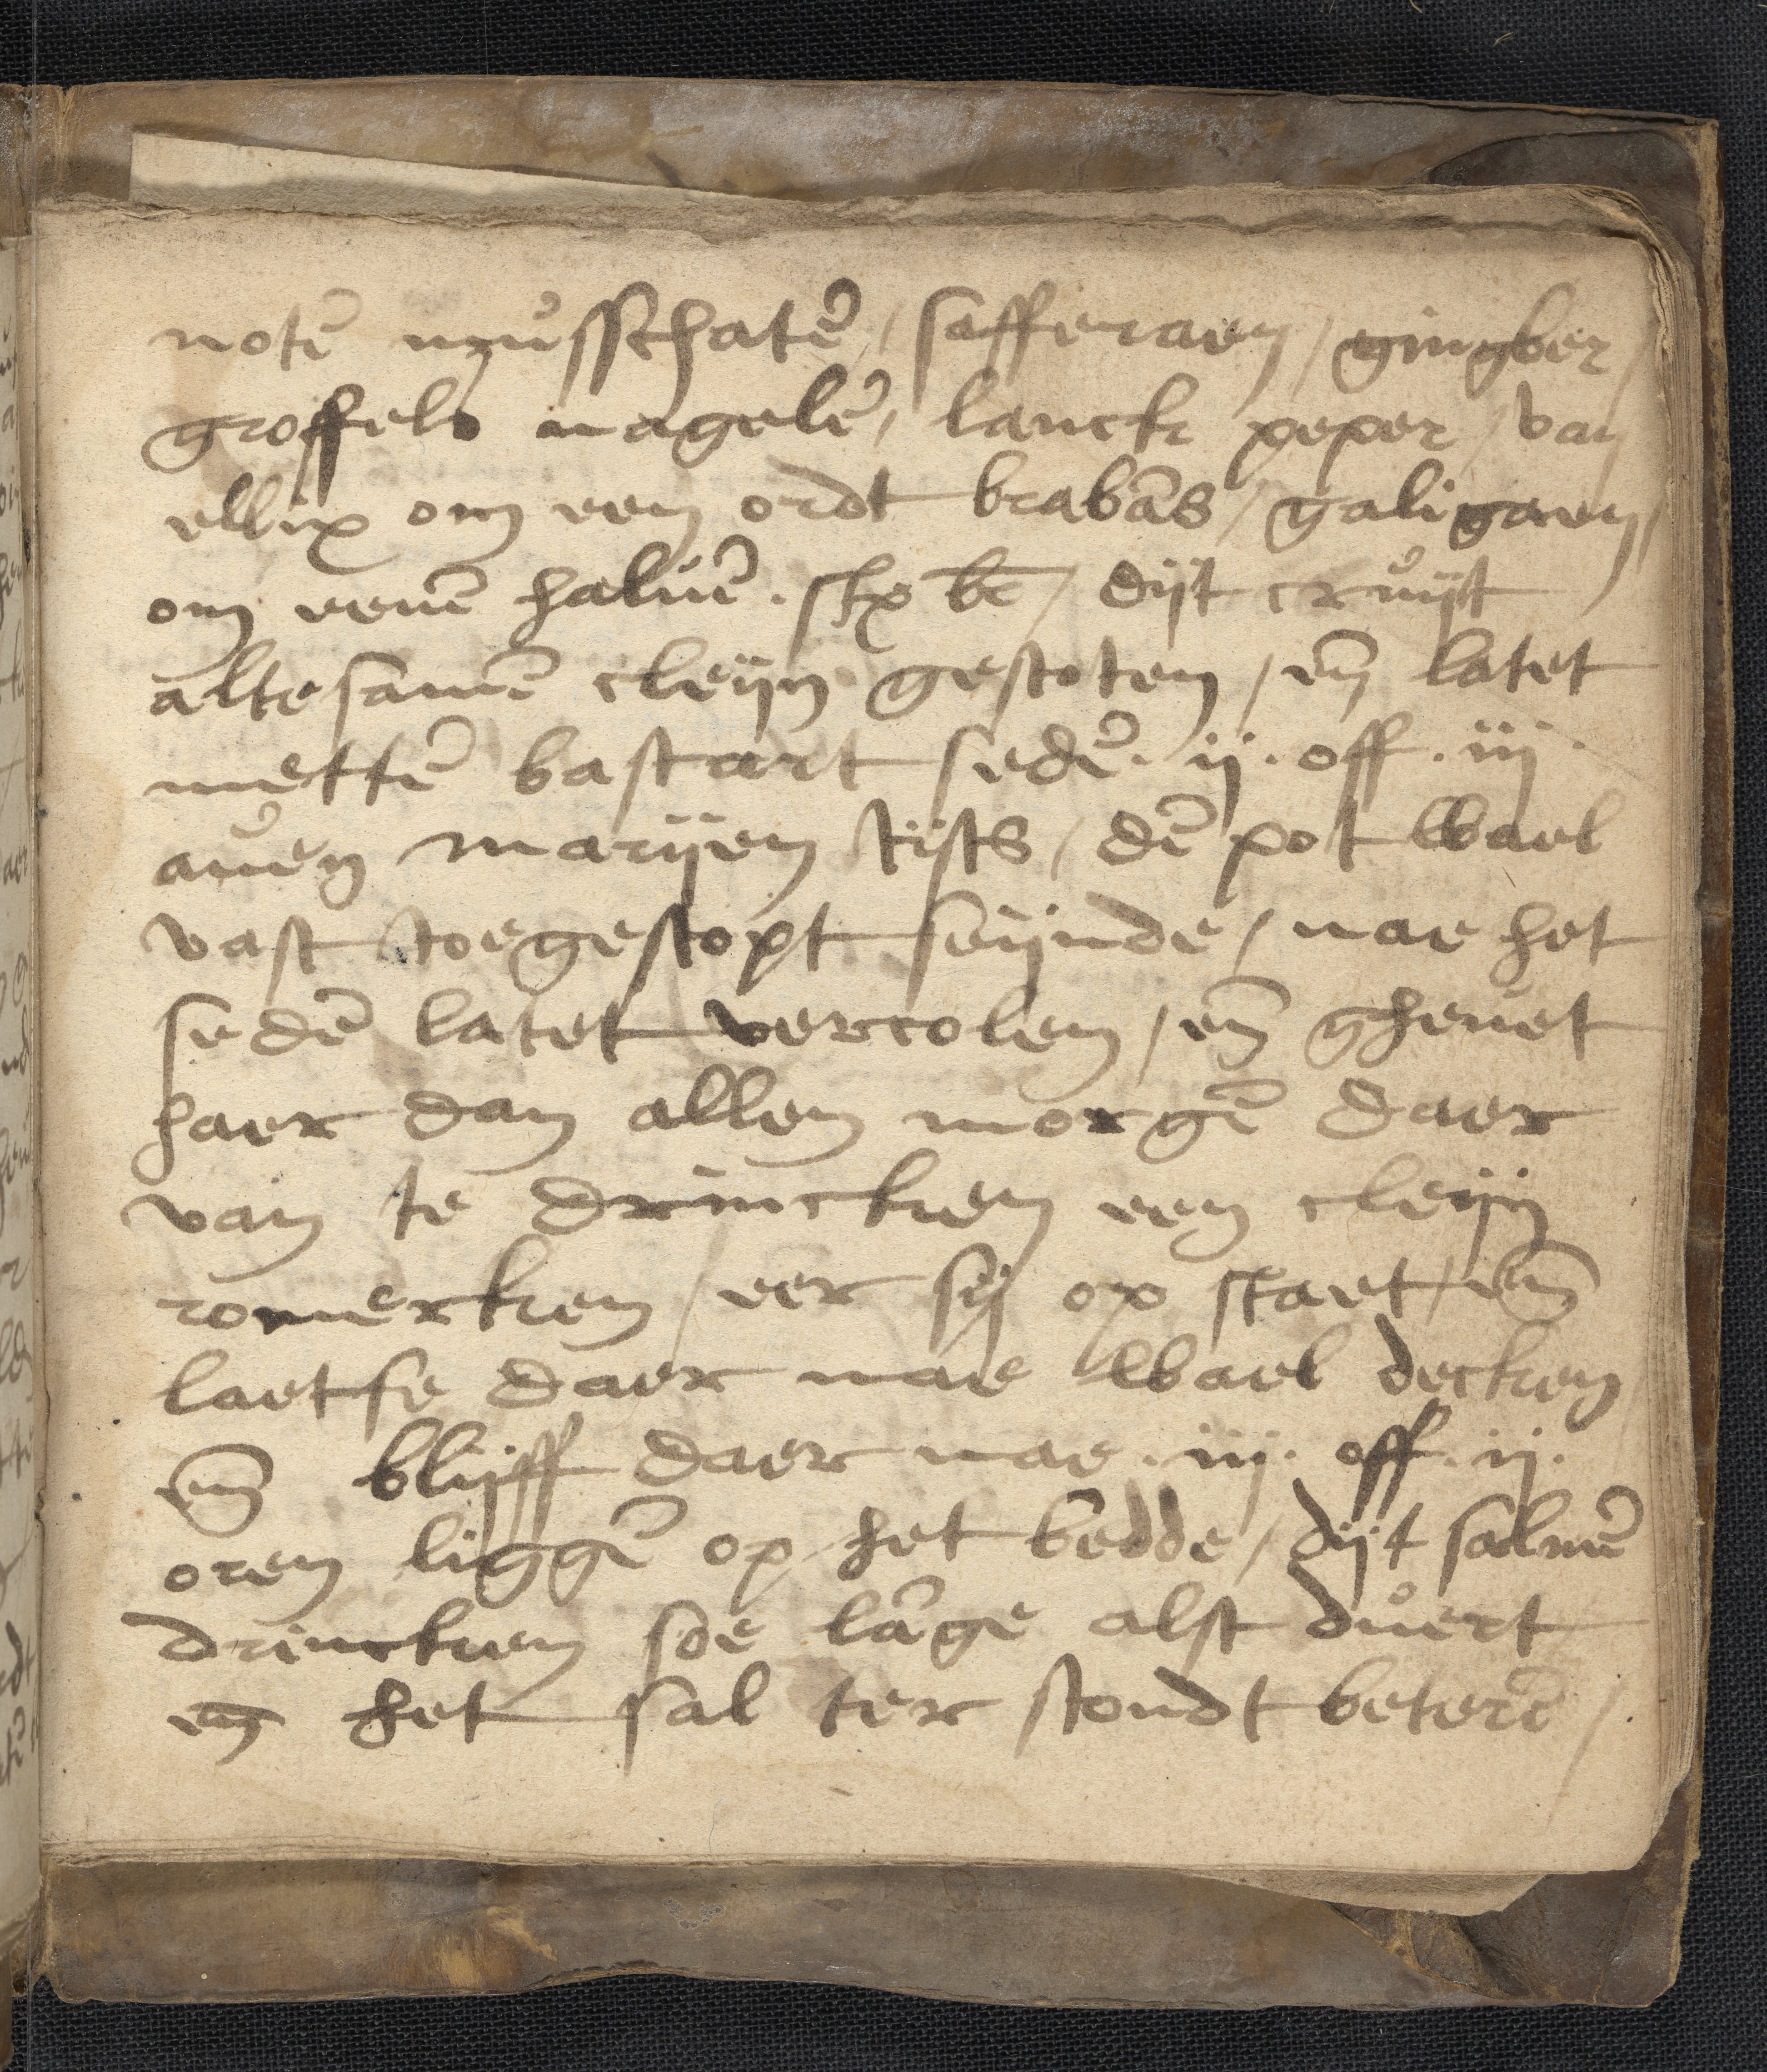 notē mŭsschatē / saffenraen / gingber /
groffels nagelē / lanck peper / van
ellix om een ordt brabās / galigaen /
om eenē haluē . stx bc / dijt crŭijt
altesamē cleijn gestoten / eñ latet
mettē bastart siedē . ij . off . iij .
auen marijen tijts / dē pot wael
vast toegestopt seijnde / nae het
siedē latet vercolen / eñ gheuet
haer dan allen morgē daer
van te drincken een cleijn
romerken / eer sij op staet / eñ
laetse daer nae wael decken
eñ blijff daer nae . iij . off . ij .
oren liggē op het bedde / dijt salmē
drincken soe lāge alst dŭert
en het sal ter stondt beterē /